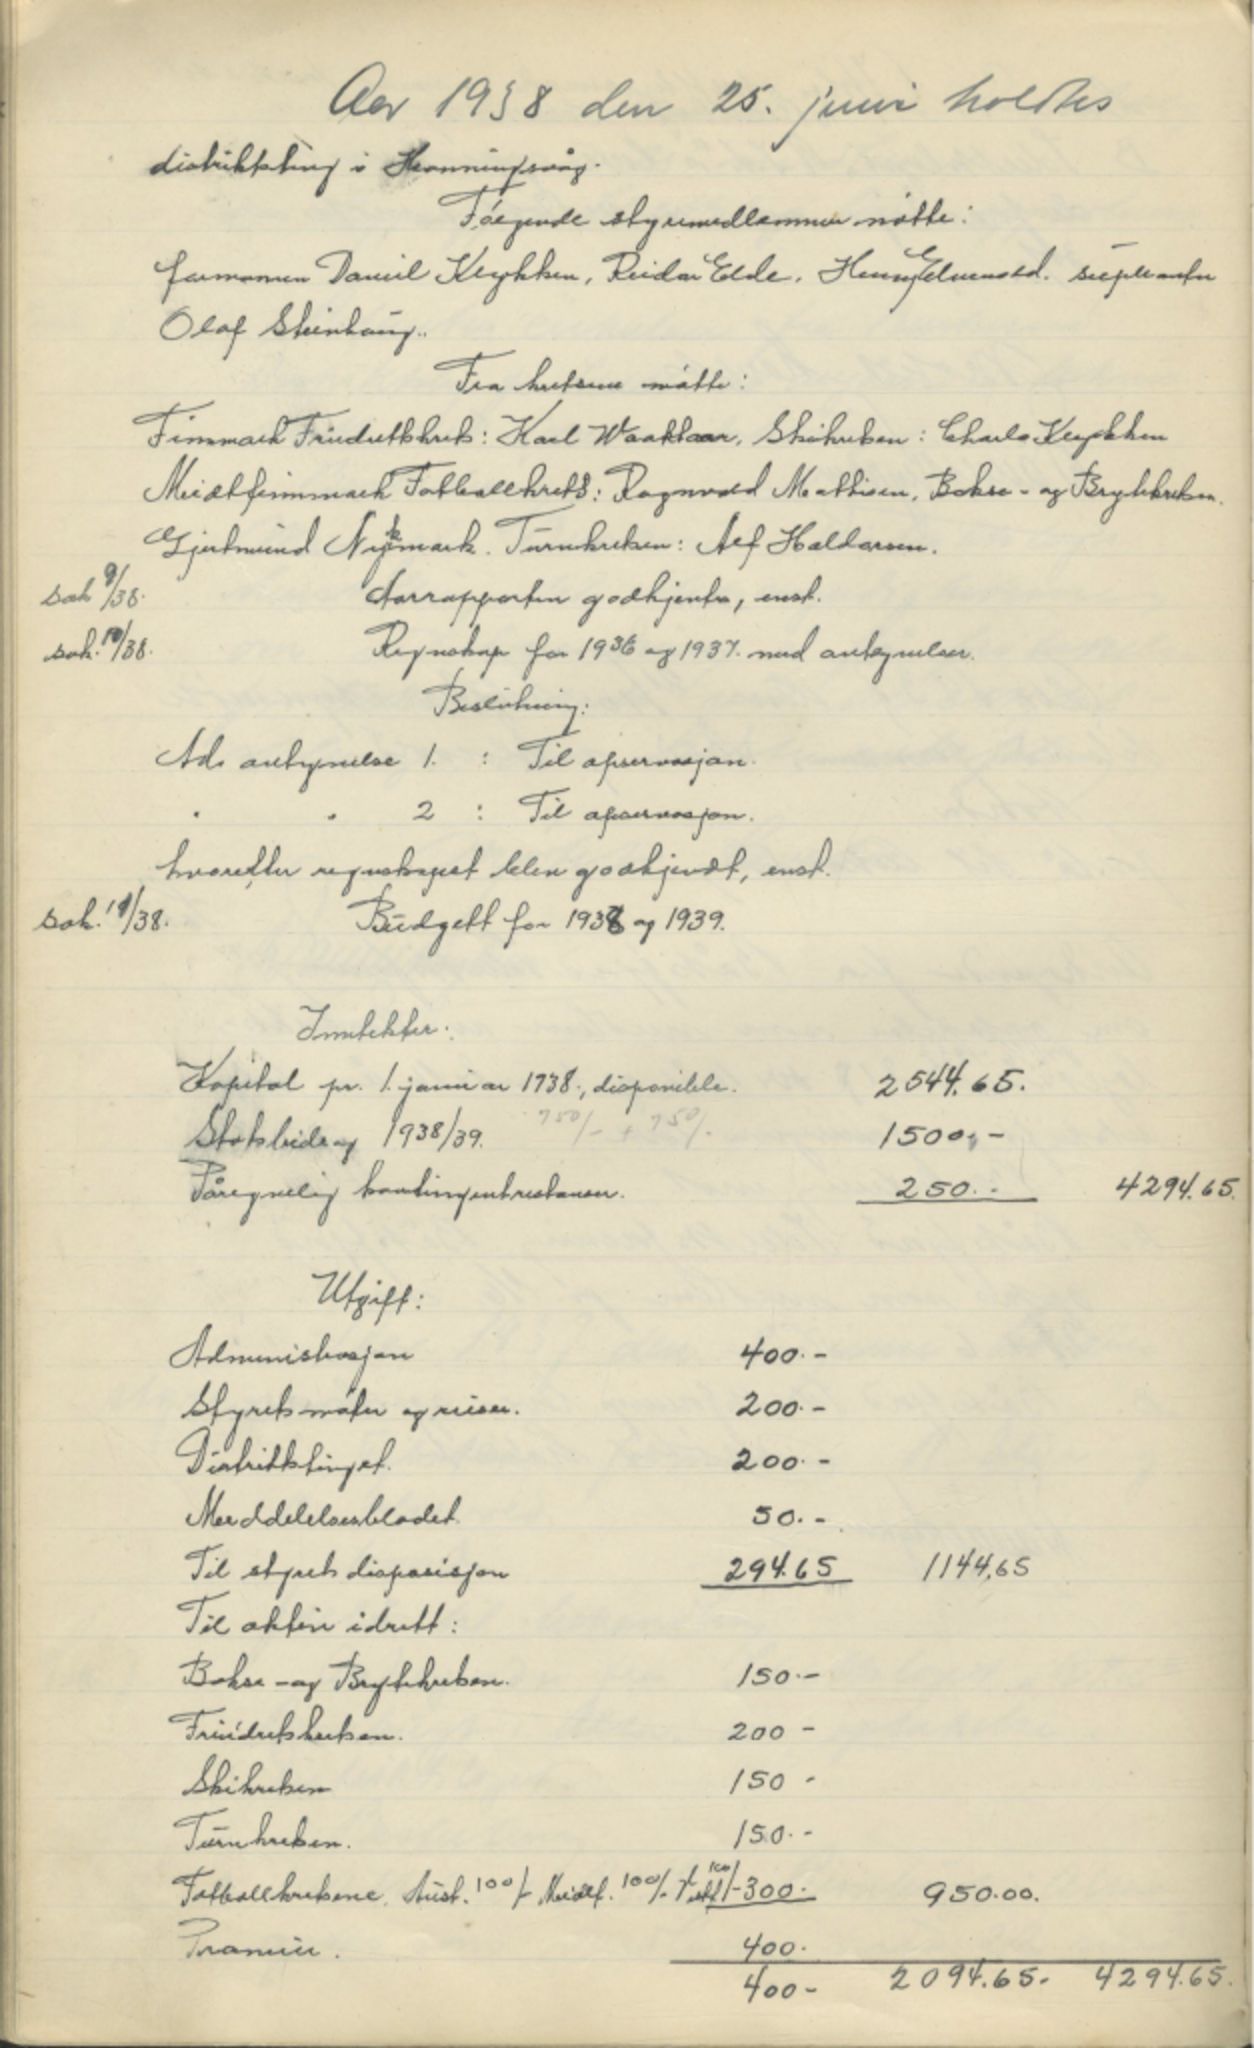 Aar 1938 den 25. juni holdtes
distriktsting i Honningsvåg.
Følgende styremedlemmer møtte:
formannen Daniel Krykken, Reidar Elde, Henry suppleanten
Olaf Steinhaug..
Fra kretsene møtte:
Finnmark Friidrettskrets: Karl Waaktaar, Skikretsen: Charles Krykken
Meidtfinnmark Fotballkrets: Ragnvald Mathisen, Bokse- og Brytekretsen.
Gjertmund Nymark. Turnkretsen: Alf Haldorsen.
sak 9/38. Aarrapporten godkjentes, enst.
sak. 10/38. Regnskap for 1936 og 1937. med antegnelser.
Beslutning:
Ad. antegnelse 1. : Til observasjon.
" " 2 : Til observasjon.
hvoretter regnskapet blev godkjendt, enst.
sak. 11/38. Budgett for 1938 og 1939.
Inntekter:
Kapital pr. 1. januar 1938., disponible. 2544.65.
Statsbidrag 1938/39. 750/- + 750/- 1500.-
Påregnelig kontingentrestanser. 250.- 4294.65.
Utgift:
Administrasjon 400.-
Styrets møter og reiser. 200.-
Distriktstinget. 200.-
Meddelelsesbladet. 50.-
Til styrets disposisjon 294.65 1144.65
Til aktiv idrett:
Bokse-og Brytekretsen. 150.-
Friidretskretsen. 200 -
Skikretsen 150 -
Turnkretsen. 150.-
Fotballkretsene, Aust. 100/- Meidtf. 100/- Vestf 100/- 300.- 950.00.
Premier. 400.
400- 2094.65- 4294.65.